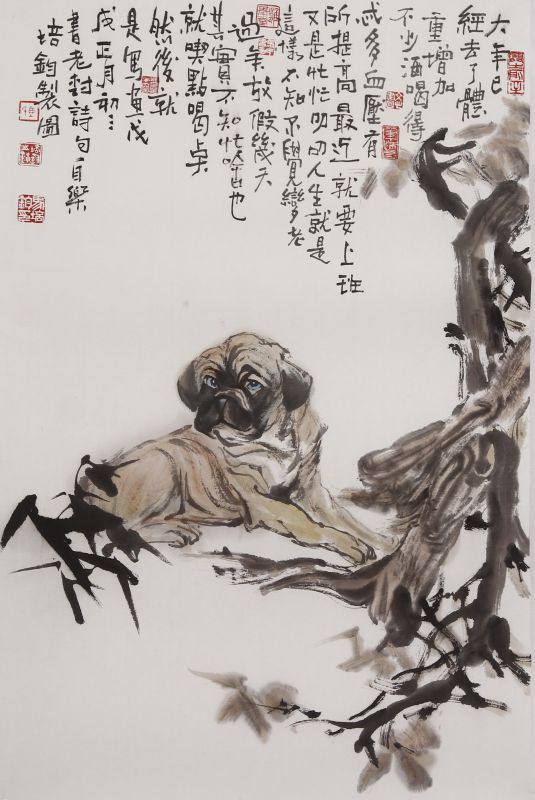 大年已
經去了體
重增加
不少酒喝得
忒多血壓有
所提高最近就要上班
又是忙忙叨叨人生就是
這樣不知不覺變老
過年放假幾天
其實不知忙啥也
就喫點喝點
然後就
是寫畫戊
戌正月初
書老詩句自樂
培鈞製圖